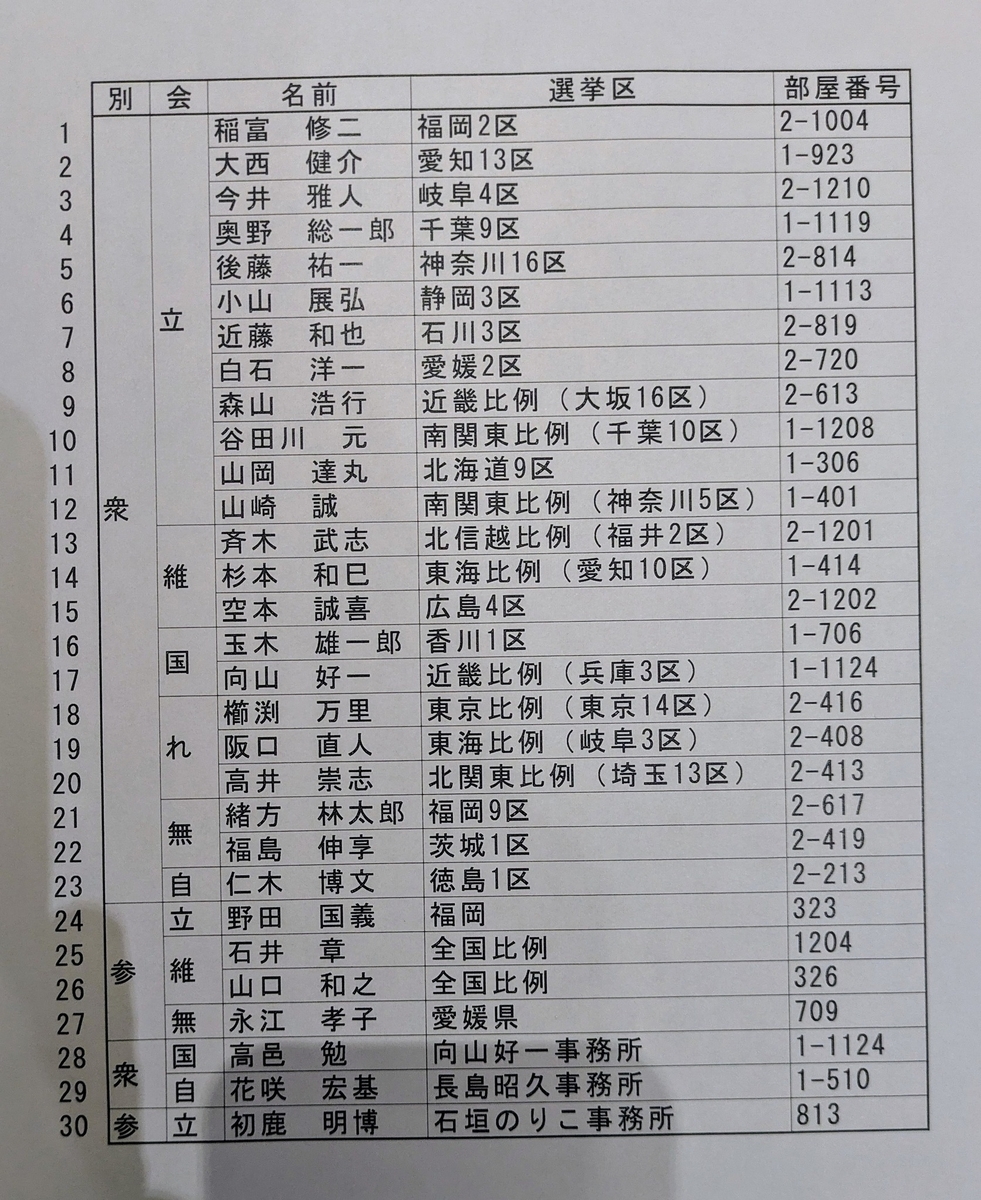 別 会 名前 選挙区 部屋番号
1 衆 立 稲富 修二 福岡2区 2-1004
2 大西 健介 愛知13区 1-923
3 今井 雅人 岐阜4区 2-1210
4 奥野 総一郎 千葉9区 1-1119
5 後藤 祐一 神奈川16区 2-814
6 小山 展弘 静岡3区 1-1113
7 近藤 和也 石川3区 2-819
8 白石 洋一 愛媛2区 2-720
9 森山 浩行 近畿比例（大坂16区） 2-613
10 谷田川 元 南関東比例（千葉10区） 1-1208
11 山岡 達丸 北海道9区 1-306
12 山崎 誠 南関東比例（神奈川5区） 1-401
13 維 斉木 武志 北信越比例（福井2区） 2-1201
14 杉本 和巳 東海比例（愛知10区） 1-414
15 空本 誠喜 広島4区 2-1202
16 国 玉木 雄一郎 香川1区 1-706
17 向山 好一 近畿比例（兵庫3区） 1-1124
18 れ 櫛渕 万里 東京比例（東京14区） 2-416
19 阪口 直人 東海比例（岐阜3区） 2-408
20 高井 崇志 北関東比例（埼玉13区） 2-413
21 無 緒方 林太郎 福岡9区 2-617
22 福島 伸享 茨城1区 2-419
23 自 仁木 博文 徳島1区 2-213
24 参 立 野田 国義 福岡 323
25 維 石井 章 全国比例 1204
26 山口 和之 全国比例 326
27 無 永江 孝子 愛媛県 709
28 衆 国 高邑 勉 向山好一事務所 1-1124
29 自 花咲 宏基 長島昭久事務所 1-510
30 参 立 初鹿 明博 石垣のりこ事務所 813